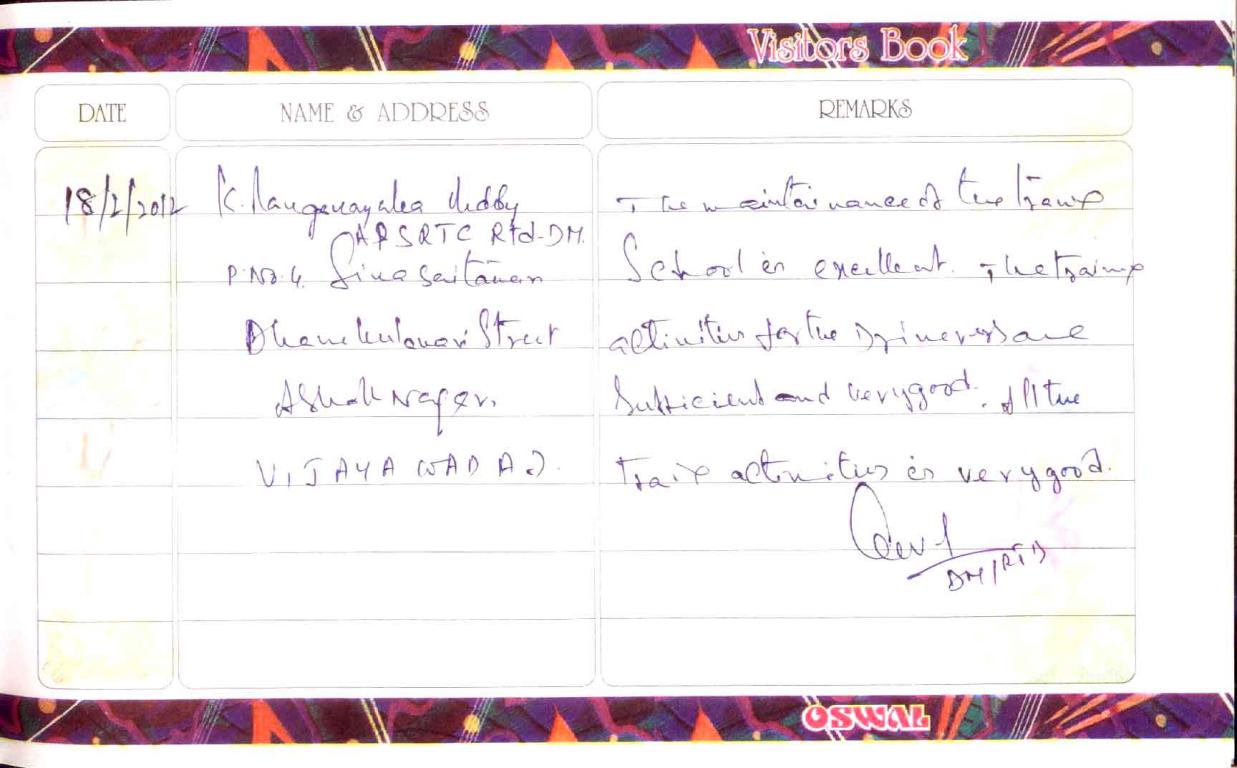 Visitors Book
DATE
NAME & ADDRESS
REMARKS
18/2/2012
K. Ranganayaka Reddy
APSRTC Rtd-DM.
P.No. 4.
Street
Ashok Nagar,
VIJAYAWADA
The maintainance of the
School is excellent. The
activities for the are
Sufficient and very good. All the
activities is very good.
DM/RTD
OSWAL